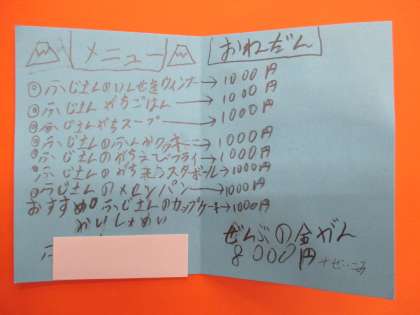 メニュー おねだん
ふじさんのいせきウィンナ→1000円
ふじさんがちごはん→1000円
ふじさんがちスープ→1000円
ふじさんのふんかクッキー→1000円
ふじさんのがちえびフライ→1000円
ふじさんのがちモンスターボール→1000円
ふじさんのメロンパン→1000円
おすすめ ふじさんのカップケーキ→1000円
かいしゃめい
ぜんぶの金がく
8000円 +ぜいこみ